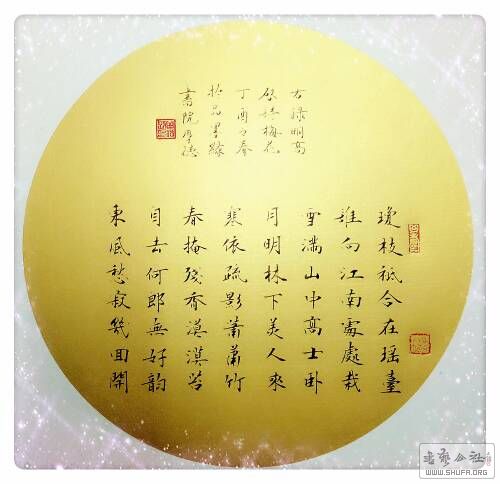 瓊枝祗合在瑶臺
誰向江南處處栽
雪滿山中高士卧
月明林下美人來
寒依疏影蕭蕭竹
春掩殘香漠漠苔
自去何郎無好韵
東風愁寂幾回開
右錄明高
啟詩梅花
丁酉之春
於品墨緣
書院
书艺公社
WWW.SHUFA.ORG